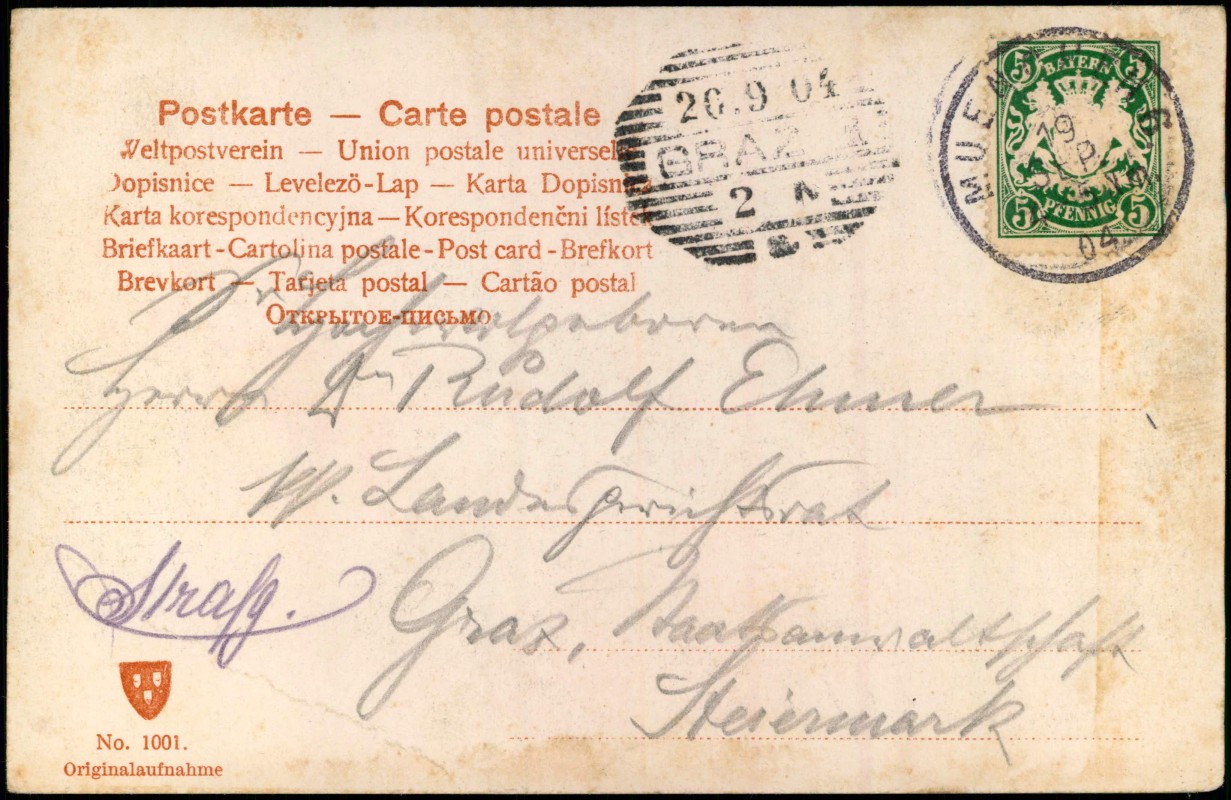 Postkarte — Carte postale
Weltpostverein — Union postale universelle
Dopisnice — Levelező-Lap — Karta Dopisna
Karta korespondencyjna — Korespondenčni lístek
Briefkaart - Cartolina postale - Post card - Brefkort
Brevkort — Tarjeta postal — Cartão postal
Открытое-письмо
20.9 04
GRAZ 1
2
5 5
BAYERN
5 PFENNIG 5
MUENCHEN
19
SEP
04
Hochwolgeboren
Herrn Dr Rudolf Ehmer
Landesgerichtsrat
Strafg.
Graz, Staatsanwaltschaft
Steiermark
No. 1001.
Originalaufnahme